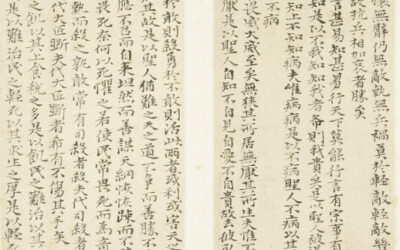 攘無臂仍無敵執無兵禍莫於輕敵輕敵幾
故抗兵相加哀者勝矣
言甚易知甚易行天下莫能行言有宗事有
知是以不我知知我者希則我貴矣是以聖人被
知上不知知病夫唯病病是以不病聖人不病以其
不病
畏威大威至矣無狹其所居無厭其所生夫唯
厭是以聖人自知不自見自愛不自貴故去彼取
於敢則殺勇於不敢則活此兩者或利或害天之
其故是以聖人猶難之天之道不爭而善勝不
應不召而自來坦然而善謀天網恢恢踈而不
畏死奈何以死懼之若使民常畏死而為奇
而殺之孰敢常有司殺者殺夫代司殺者
代大匠斲夫代大匠斲者希有不傷其手矣
飢以其上食稅之多是以飢民之難治以其
是以難治民之輕死以其求生之厚是以輕